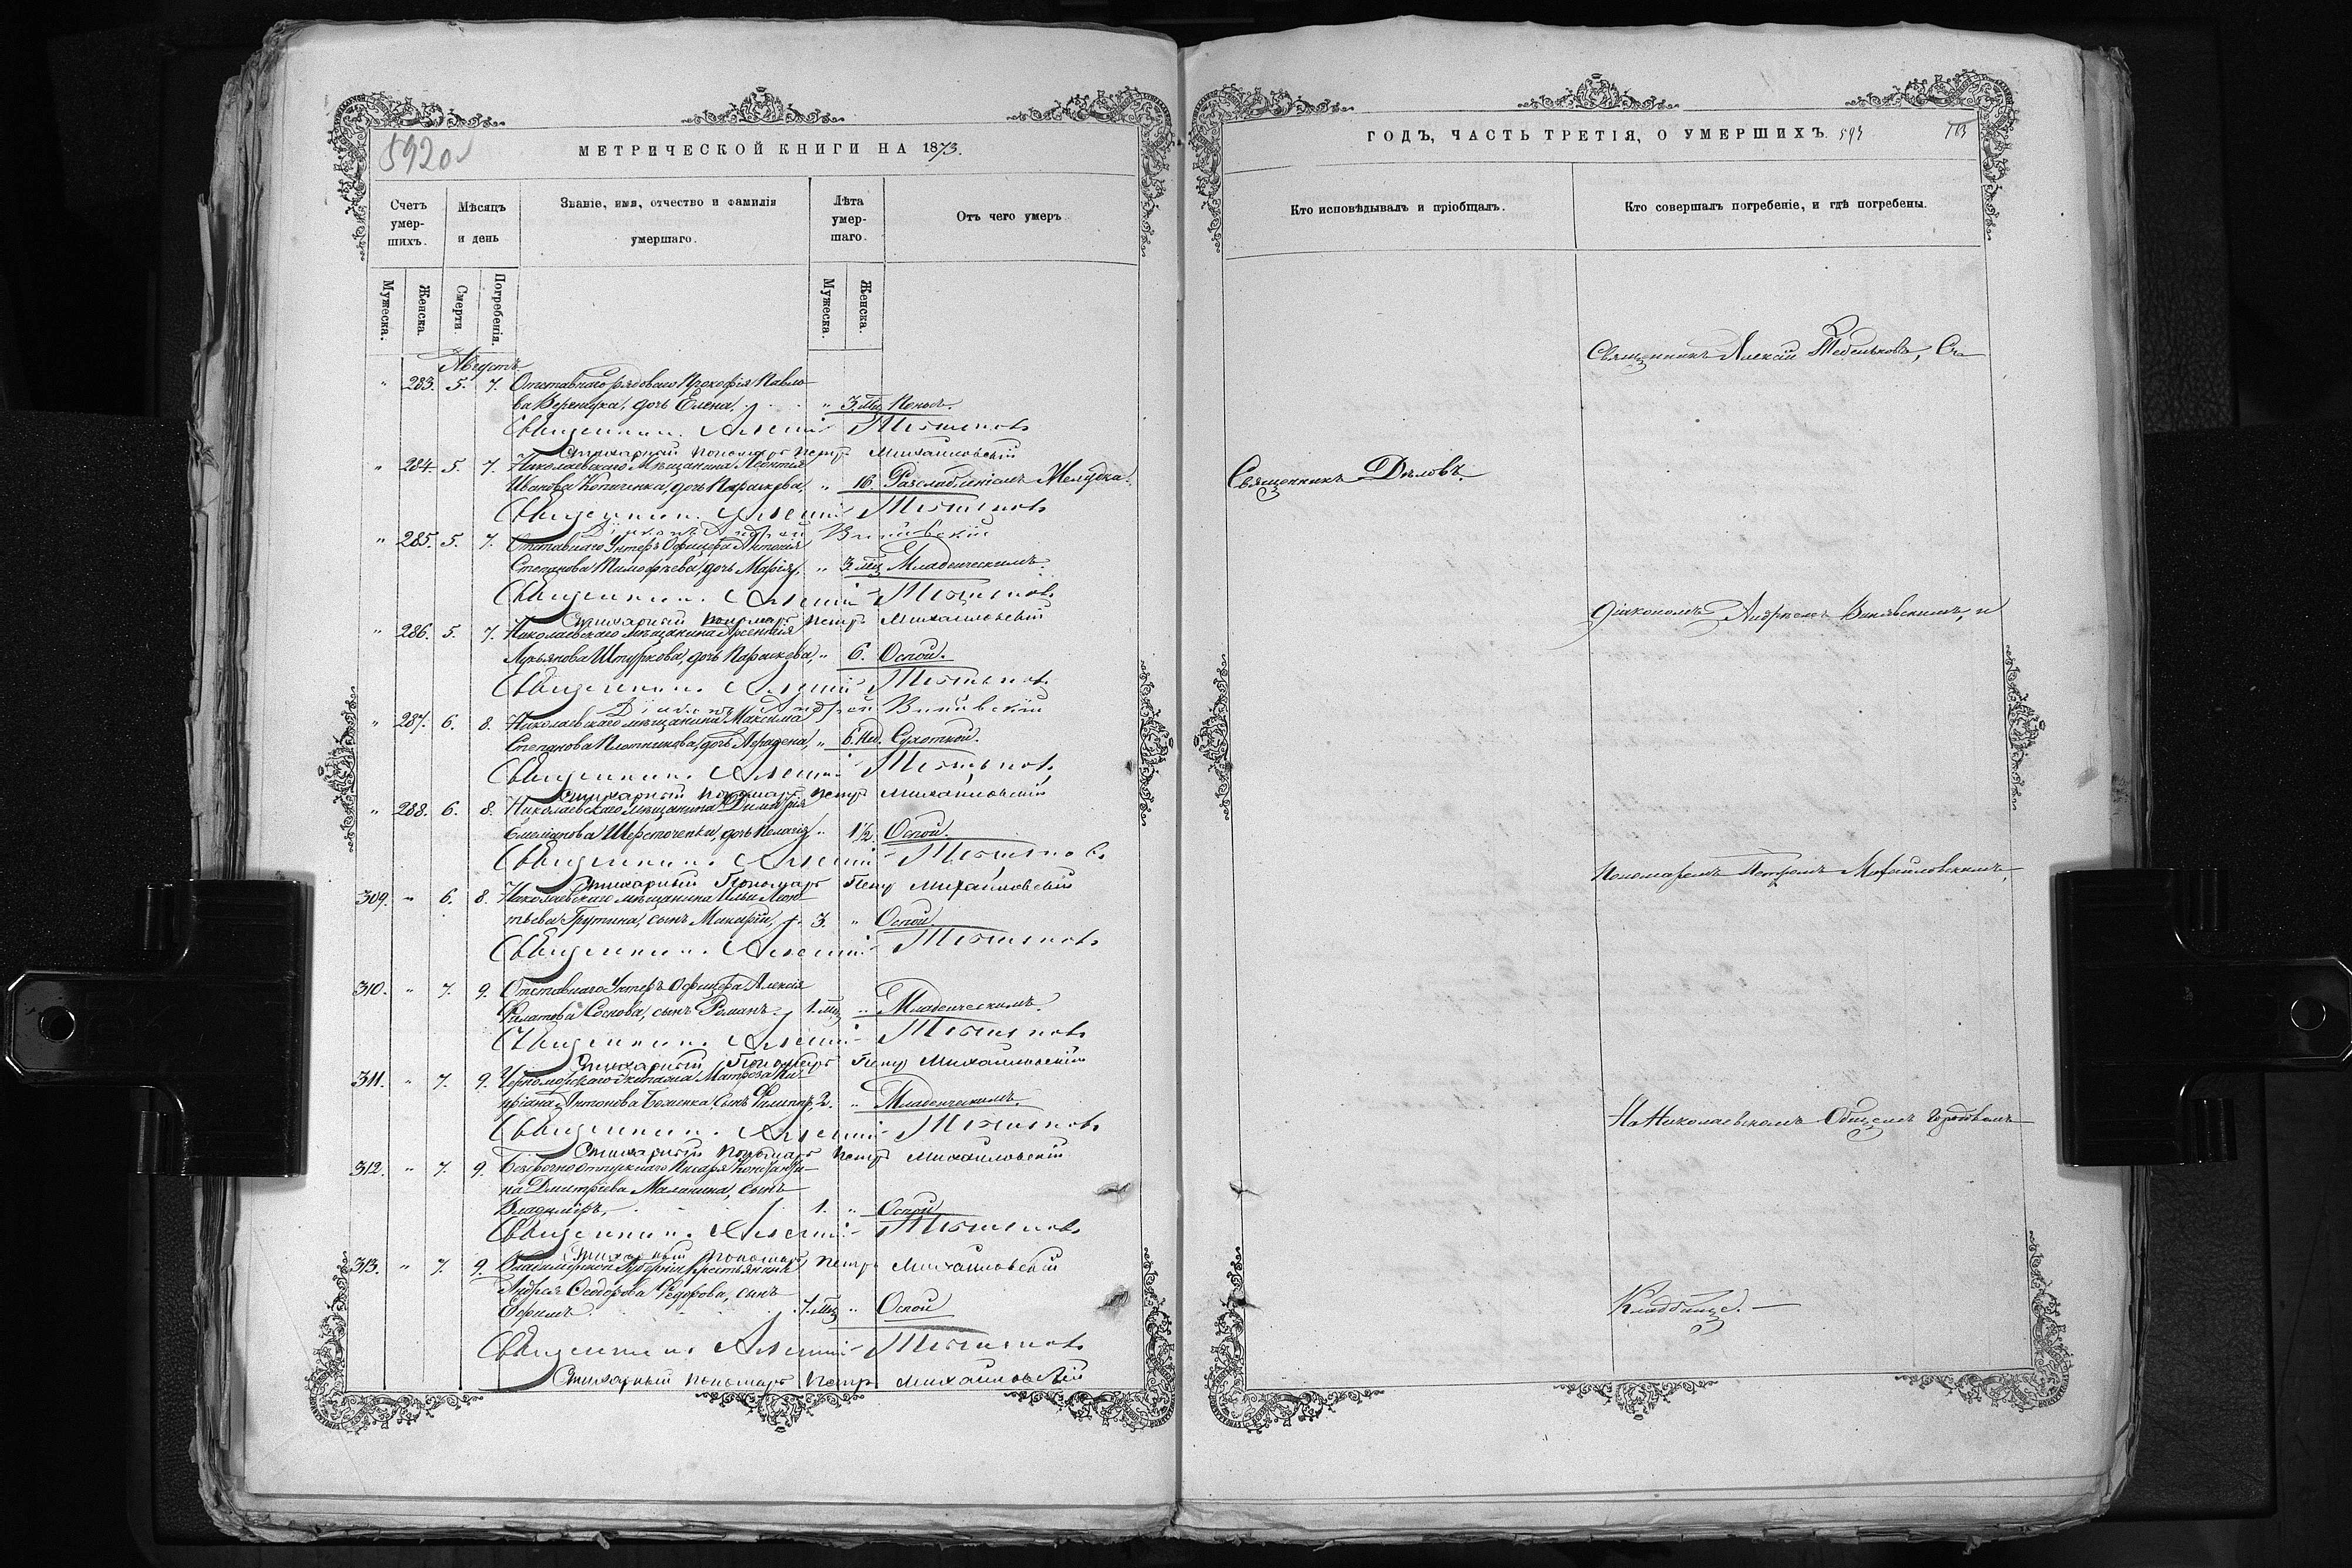 5920
МЕТРИЧЕСКОЙ КНИГИ НА 1873.
Счетъ умер-шихъ.
Мѣсяцъ и день
Званіе, имя, отчество и фамилія умершаго.
Лѣта умер-шаго.
Отъ чего умеръ
Мужеска.
Женска.
Смерти.
Погребенія.
Мужеска.
Женска.
Августъ
" 283. 5. 7. Отставнаго рядоваго Прокофія Павло-
ва дочь Елена, " 3. мц Поносъ.
Священникъ Алексій
Стихарный пономарь Петръ Михайловскій
" 284. 5. 7. Николаевскаго Мѣщанина Леонтія
Иванова дочь Параскева, " 16. Разслабленіемъ Желудка.
Священникъ Алексій
Діаконъ Андрей
" 285. 5. 7. Отставнаго Унтеръ Офицера Антонія
Степанова Тимофѣева, дочь Марія, " 3 мц Младенческимъ.
Священникъ Алексій
Стихарный пономарь Петръ Михайловскій
" 286. 5. 7. Николаевскаго мѣщанина Арсенія
Лукьянова Штуркова, дочь Параскева, " 6. Оспой.
Священникъ Алексій
Діаконъ Андрей
" 287. 6. 8. Николаевскаго мѣщанина Максима
Степанова Плотникова, дочь " 6. нед. Сухоткой.
Священникъ Алексій
Стихарный пономарь Петръ Михайловскій
" 288. 6. 8. Николаевскаго мѣщанина Димитрія
Емеліанова Шерсточенка, дочь Пелагія, " 1½. Оспой.
Священникъ Алексій
Стихарный Пономарь Петръ Михайловскій
309. " 6. 8. Николаевскаго мѣщанина Ильи Леон-
тьева сынъ Макарій, 3. " Оспой.
Священникъ Алексій
310. " 7. 9. Отставнаго Унтеръ Офицера Алексія
Соснова, сынъ Романъ. 1. мц " Младенческимъ.
Священникъ Алексій
Стихарный Пономарь Петръ Михайловскій
311. " 7. 9. Черноморскаго Экипажа Матроза Ки-
пріана Антонова сынъ Филиппъ, 2. " Младенческимъ.
Священникъ Алексій
Стихарный пономарь Петръ Михайловскій
312. " 7. 9. Безсрочно отпускнаго Писаря Константи-
на Дмитріева Маланина, сынъ
Владиміръ, 1. " Оспой.
Священникъ Алексій
Стихарный пономарь Петръ Михайловскій
313. " 7. 9. Владимирской Губерніи Крестьянина
Андрея Ѳеодорова Ѳедорова, сынъ
Ефимъ. 7. мц " Оспой
Священникъ Алексій
Стихарный пономарь Петръ Михайловскій
ГОДЪ, ЧАСТЬ ТРЕТІЯ, О УМЕРШИХЪ. 593
Кто исповѣдывалъ и пріобщалъ.
Кто совершалъ погребеніе, и гдѣ погребены.
Священникъ Алексій
Священникъ Дѣловъ.
Діакономъ Андреемъ и
Пономаремъ Петромъ Михайловскимъ,
На Николаевскомъ Общемъ Городскомъ
Кладбище.